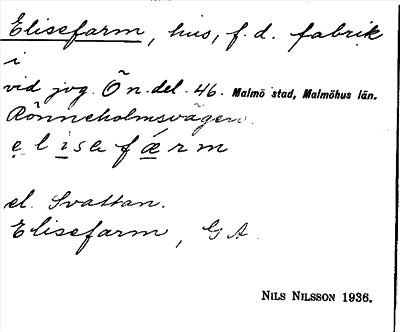 Elisefarm, hus, f. d. fabrik
i
vid jvg. Ön. del. 46. Malmö stad, Malmöhus län.
Rönneholmsvägen.
e l i s e f æ r m
el. Svattan.
Elisefarm, G A
NILS NILSSON 1936.